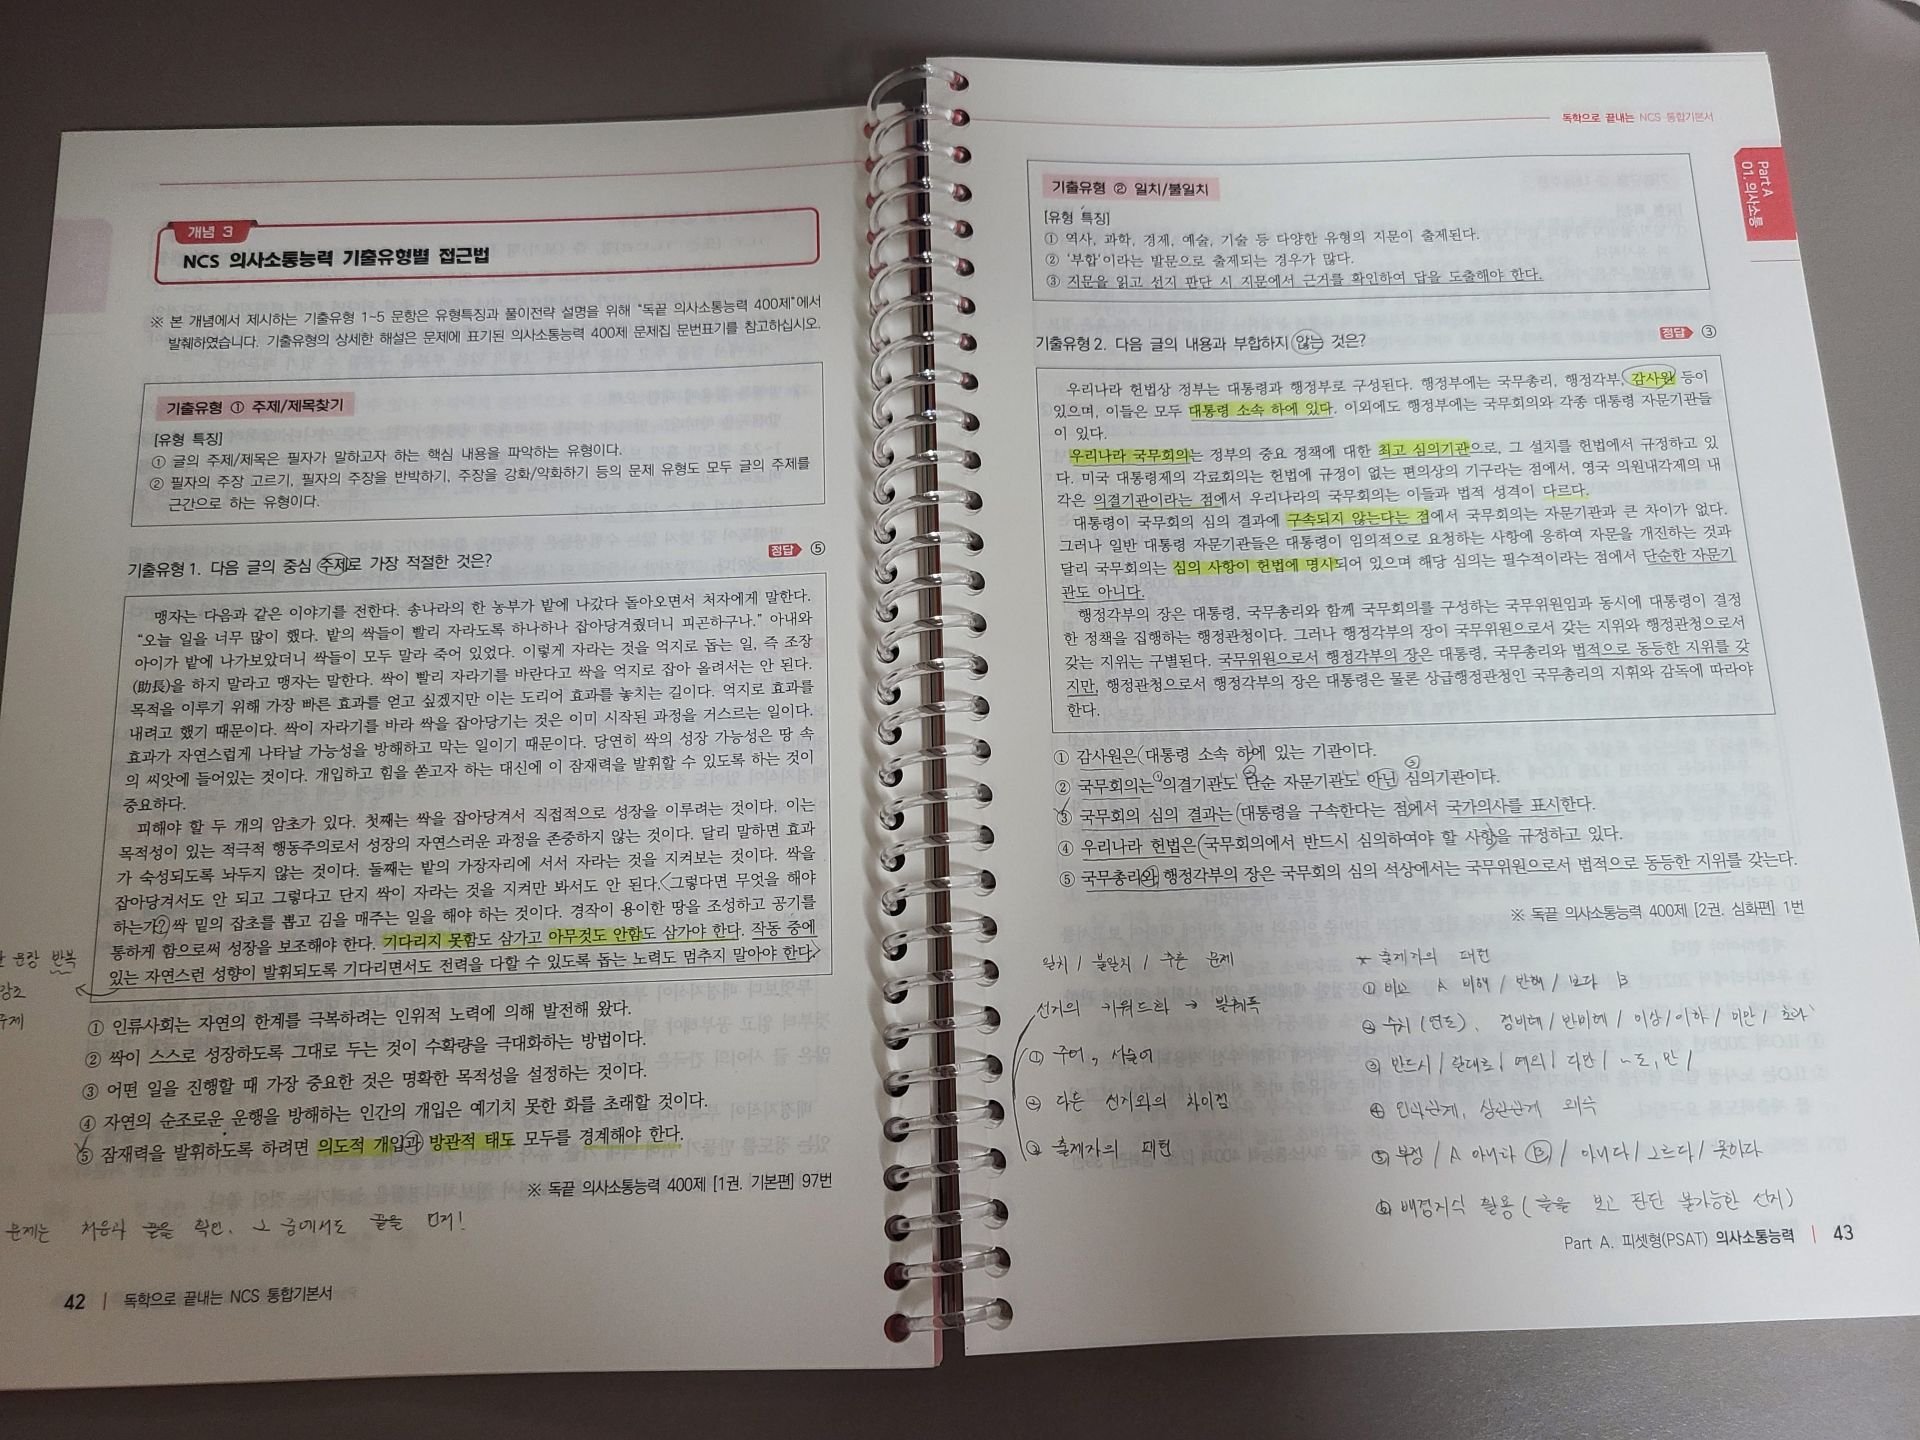 개념 3
NCS 의사소통능력 기출유형별 접근법
※ 본 개념에서 제시하는 기출유형 1~5 문항은 유형특징과 풀이전략 설명을 위해 "독끝 의사소통능력 400제"에서
발췌하였습니다. 기출유형의 상세한 해설은 문제에 표기된 의사소통능력 400제 문제집 문번표기를 참고하십시오.
기출유형 ① 주제/제목찾기
[유형 특징]
① 글의 주제/제목은 필자가 말하고자 하는 핵심 내용을 파악하는 유형이다.
② 필자의 주장 고르기, 필자의 주장을 반박하기, 주장을 강화/약화하기 등의 문제 유형도 모두 글의 주제를
근간으로 하는 유형이다.
기출유형 1. 다음 글의 중심 주제로 가장 적절한 것은?
정답 ⑤
맹자는 다음과 같은 이야기를 전한다. 송나라의 한 농부가 밭에 나갔다 돌아오면서 처자에게 말한다.
"오늘 일을 너무 많이 했다. 밭의 싹들이 빨리 자라도록 하나하나 잡아당겨줬더니 피곤하구나." 아내와
아이가 밭에 나가보았더니 싹들이 모두 말라 죽어 있었다. 이렇게 자라는 것을 억지로 돕는 일, 즉 조장
(助長)을 하지 말라고 맹자는 말한다. 싹이 빨리 자라기를 바란다고 싹을 억지로 잡아 올려서는 안 된다.
목적을 이루기 위해 가장 빠른 효과를 얻고 싶겠지만 이는 도리어 효과를 놓치는 길이다. 억지로 효과를
내려고 했기 때문이다. 싹이 자라기를 바라 싹을 잡아당기는 것은 이미 시작된 과정을 거스르는 일이다.
효과가 자연스럽게 나타날 가능성을 방해하고 막는 일이기 때문이다. 당연히 싹의 성장 가능성은 땅 속
의 씨앗에 들어있는 것이다. 개입하고 힘을 쏟고자 하는 대신에 이 잠재력을 발휘할 수 있도록 하는 것이
중요하다.
피해야 할 두 개의 암초가 있다. 첫째는 싹을 잡아당겨서 직접적으로 성장을 이루려는 것이다. 이는
목적성이 있는 적극적 행동주의로서 성장의 자연스러운 과정을 존중하지 않는 것이다. 달리 말하면 효과
가 숙성되도록 놔두지 않는 것이다. 둘째는 밭의 가장자리에 서서 자라는 것을 지켜보는 것이다. 싹을
잡아당겨서도 안 되고 그렇다고 단지 싹이 자라는 것을 지켜만 봐서도 안 된다. 그렇다면 무엇을 해야
하는가? 싹 밑의 잡초를 뽑고 김을 매주는 일을 해야 하는 것이다. 경작이 용이한 땅을 조성하고 공기를
통하게 함으로써 성장을 보조해야 한다. 기다리지 못함도 삼가고 아무것도 안함도 삼가야 한다. 작동 중에
있는 자연스런 성향이 발휘되도록 기다리면서도 전력을 다할 수 있도록 돕는 노력도 멈추지 말아야 한다.
문장 반복
강조
주제
① 인류사회는 자연의 한계를 극복하려는 인위적 노력에 의해 발전해 왔다.
② 싹이 스스로 성장하도록 그대로 두는 것이 수확량을 극대화하는 방법이다.
③ 어떤 일을 진행할 때 가장 중요한 것은 명확한 목적성을 설정하는 것이다.
④ 자연의 순조로운 운행을 방해하는 인간의 개입은 예기치 못한 화를 초래할 것이다.
⑤ 잠재력을 발휘하도록 하려면 의도적 개입과 방관적 태도 모두를 경계해야 한다.
※ 독끝 의사소통능력 400제 [1권. 기본편] 97번
문제는 처음과 끝을 확인. 그 중에서도 끝을 먼저!
42 | 독학으로 끝내는 NCS 통합기본서
독학으로 끝내는 NCS 통합기본서
Part A
01. 의사소통
기출유형 ② 일치/불일치
[유형 특징]
① 역사, 과학, 경제, 예술, 기술 등 다양한 유형의 지문이 출제된다.
② '부합'이라는 발문으로 출제되는 경우가 많다.
③ 지문을 읽고 선지 판단 시 지문에서 근거를 확인하여 답을 도출해야 한다.
기출유형 2. 다음 글의 내용과 부합하지 않는 것은?
정답 ③
우리나라 헌법상 정부는 대통령과 행정부로 구성된다. 행정부에는 국무총리, 행정각부, 감사원 등이
있으며, 이들은 모두 대통령 소속 하에 있다. 이외에도 행정부에는 국무회의와 각종 대통령 자문기관들
이 있다.
우리나라 국무회의는 정부의 중요 정책에 대한 최고 심의기관으로, 그 설치를 헌법에서 규정하고 있
다. 미국 대통령제의 각료회의는 헌법에 규정이 없는 편의상의 기구라는 점에서, 영국 의원내각제의 내
각은 의결기관이라는 점에서 우리나라의 국무회의는 이들과 법적 성격이 다르다.
대통령이 국무회의 심의 결과에 구속되지 않는다는 점에서 국무회의는 자문기관과 큰 차이가 없다.
그러나 일반 대통령 자문기관들은 대통령이 임의적으로 요청하는 사항에 응하여 자문을 개진하는 것과
달리 국무회의는 심의 사항이 헌법에 명시되어 있으며 해당 심의는 필수적이라는 점에서 단순한 자문기
관도 아니다.
행정각부의 장은 대통령, 국무총리와 함께 국무회의를 구성하는 국무위원임과 동시에 대통령이 결정
한 정책을 집행하는 행정관청이다. 그러나 행정각부의 장이 국무위원으로서 갖는 지위와 행정관청으로서
갖는 지위는 구별된다. 국무위원으로서 행정각부의 장은 대통령, 국무총리와 법적으로 동등한 지위를 갖
지만, 행정관청으로서 행정각부의 장은 대통령은 물론 상급행정관청인 국무총리의 지휘와 감독에 따라야
한다.
① 감사원은 대통령 소속 하에 있는 기관이다.
② 국무회의는 의결기관도 단순 자문기관도 아닌 심의기관이다.
③ 국무회의 심의 결과는 대통령을 구속한다는 점에서 국가의사를 표시한다.
④ 우리나라 헌법은 국무회의에서 반드시 심의하여야 할 사항을 규정하고 있다.
⑤ 국무총리와 행정각부의 장은 국무회의 심의 석상에서는 국무위원으로서 법적으로 동등한 지위를 갖는다.
※ 독끝 의사소통능력 400제 [2권. 심화편] 1번
일치 / 불일치 / 추론 문제
선지의 키워드화 → 발췌독
① 주어, 서술어
② 다른 선지와의 차이점
③ 출제자의 패턴
* 출제자의 패턴
① 비교 A 비해 / 반해 / 보다 B
② 수치 (연도), 정비례 / 반비례 / 이상 / 이하 / 미만 / 초과
③ 반드시 / 절대로 / 예외 / 다만 / ~도, 만 /
④ 인과관계, 상관관계 의식
⑤ 부정 / A 아니라 B / 아니다 / 그르다 / 못하다
⑥ 배경지식 활용 (글을 보고 판단 불가능한 선지)
Part A. 피셋형(PSAT) 의사소통능력 | 43